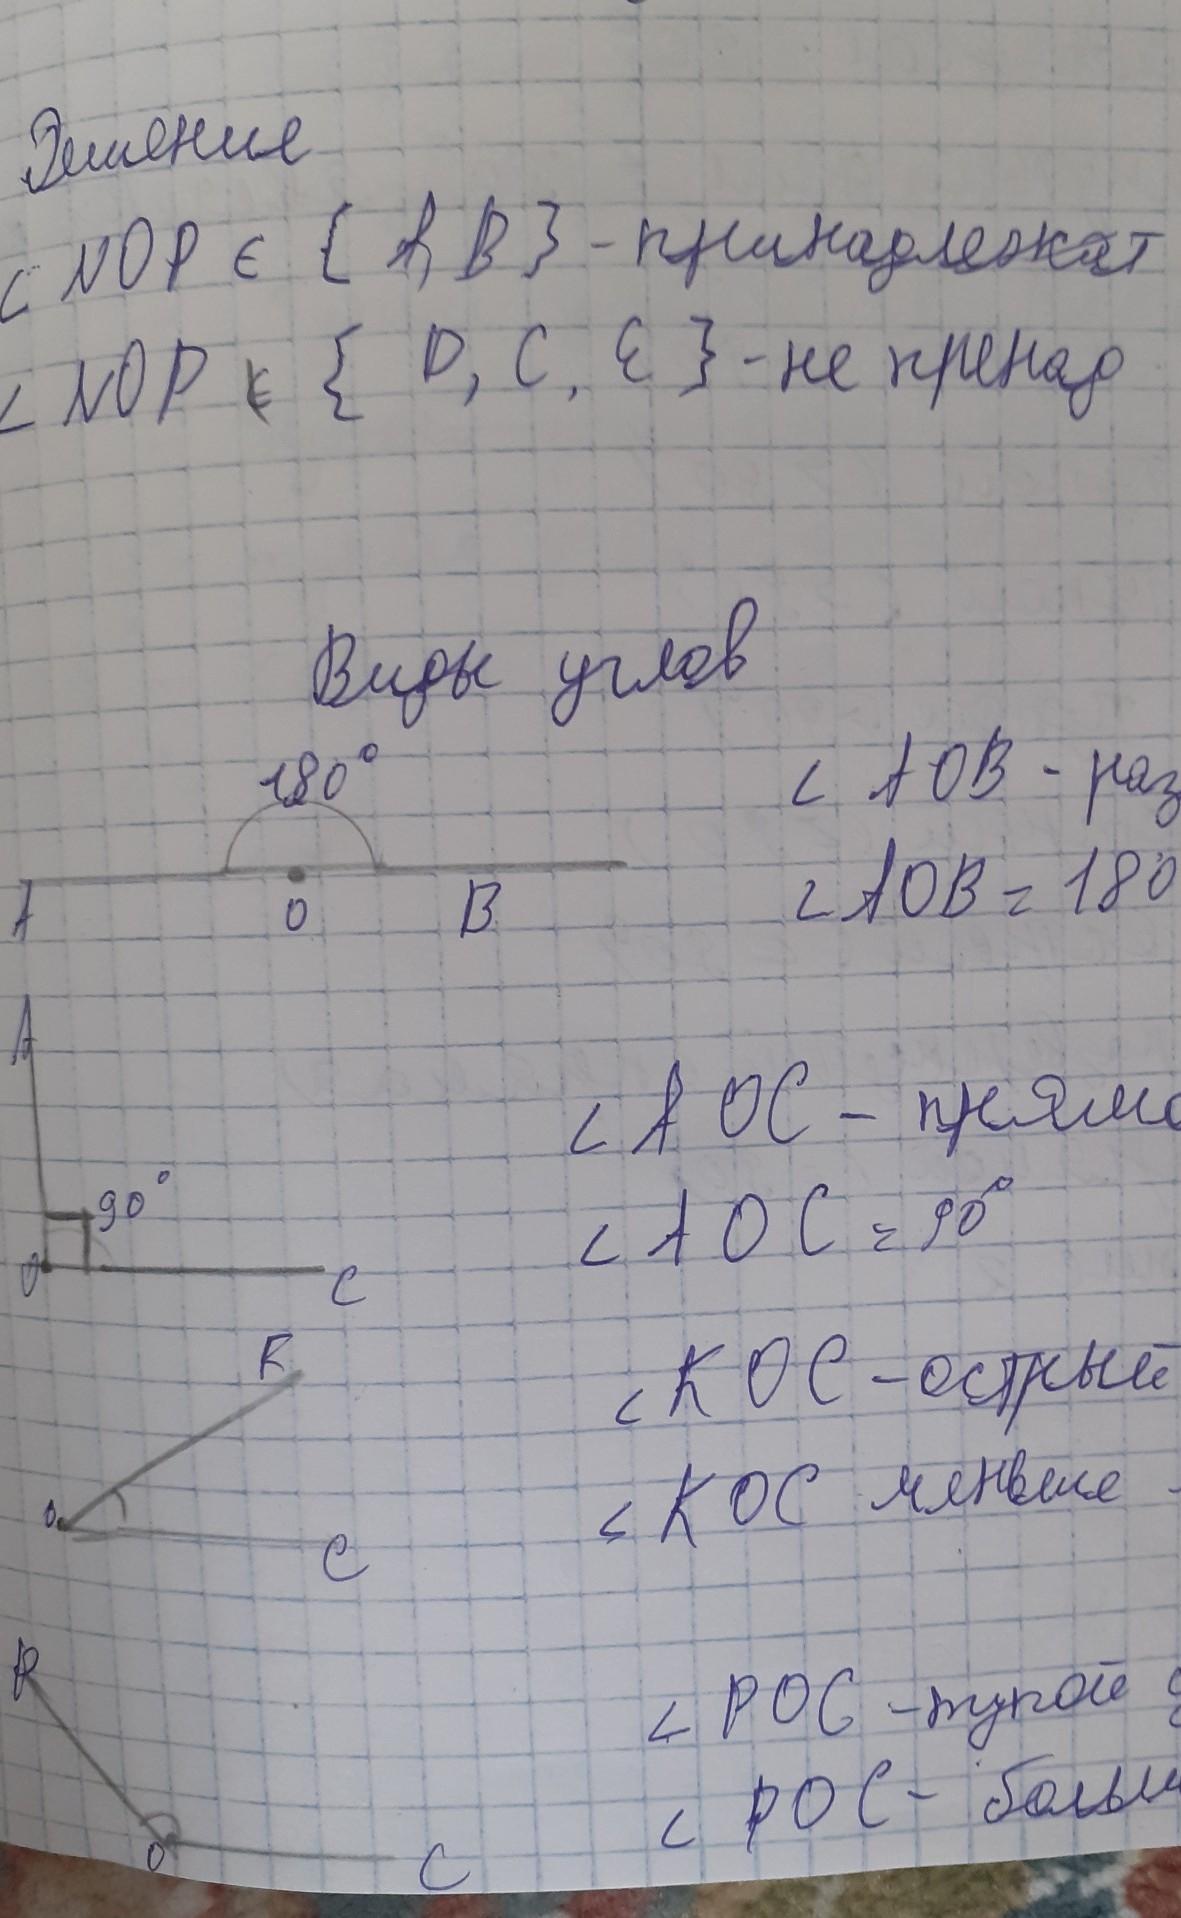 Решение
∠ NOP ∈ { A, B } - принадлежат
∠ NOP ∉ { D, C, E } - не пренад
Виды углов
180°
A O B
∠ AOB - раз
∠ AOB = 180
A
90°
O C
∠ AOC - прямо
∠ AOC = 90°
K
O C
∠ KOC - острый
∠ KOC меньше
P
O C
∠ POC - тупой
∠ POC - больш